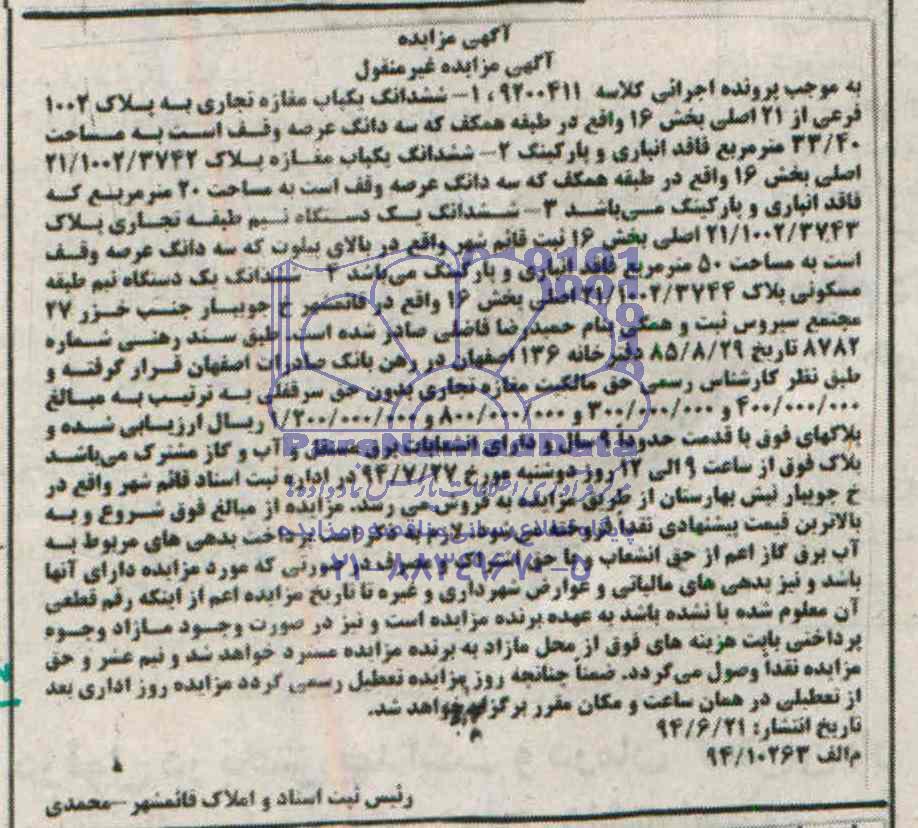 آگهی مزایده
آگهی مزایده غیرمنقول
به موجب پرونده اجرائی کلاسه ۹۲۰۰۴۱۱، ۱- ششدانگ یکباب مغازه تجاری به پلاک ۱۰۰۲
فرعی از ۲۱ اصلی بخش ۱۶ واقع در طبقه همکف که سه دانگ عرصه وقف است به مساحت
۳۳/۴۰ مترمربع فاقد انباری و پارکینگ ۲- ششدانگ یکباب مغازه پلاک ۲۱/۱۰۰۲/۳۷۴۲
اصلی بخش ۱۶ واقع در طبقه همکف که سه دانگ عرصه وقف است به مساحت ۲۰ مترمربع که
فاقد انباری و پارکینگ می‌باشد ۳- ششدانگ یک دستگاه نیم طبقه تجاری پلاک
۲۱/۱۰۰۲/۳۷۴۳ اصلی بخش ۱۶ ثبت قائم شهر واقع در بالای پیلوت که سه دانگ عرصه وقف
است به مساحت ۵۰ مترمربع فاقد انباری و پارکینگ می‌باشد ۴- ششدانگ یک دستگاه نیم طبقه
مسکونی پلاک ۲۱/۱۰۰۲/۳۷۴۴ اصلی بخش ۱۶ واقع در قائمشهر خ جویبار جنب خزر ۲۷
مجتمع سیروس ثبت و همگی بنام حمیدرضا فاضلی صادر شده است، طبق سند رهنی شماره
۸۷۸۲ تاریخ ۸۵/۸/۲۹ دفترخانه ۱۳۶ اصفهان در رهن بانک صادرات اصفهان قرار گرفته و
طبق نظر کارشناس رسمی حق مالکیت مغازه تجاری بدون حق سرقفلی به ترتیب به مبالغ
۴۰۰/۰۰۰/۰۰۰ و ۳۰۰/۰۰۰/۰۰۰ و ۸۰۰/۰۰۰/۰۰۰ و ۱/۲۰۰/۰۰۰/۰۰۰ ریال ارزیابی شده و
پلاکهای فوق با قدمت حدوداً ۹ سال و دارای انشعابات برق مستقل و آب و گاز مشترک می‌باشد
پلاک فوق از ساعت ۹ الی ۱۲ روز دوشنبه مورخ ۹۴/۷/۲۷ در اداره ثبت اسناد قائم شهر واقع در
خ جویبار نبش بهارستان از طریق مزایده به فروش می رسد. مزایده از مبالغ فوق شروع و به
بالاترین قیمت پیشنهادی نقداً فروخته می شود. لازم به ذکر است پرداخت بدهی های مربوط به
آب برق گاز اعم از حق انشعاب و یا حق اشتراک و مصرف در صورتی که مورد مزایده دارای آنها
باشد و نیز بدهی های مالیاتی و عوارض شهرداری و غیره تا تاریخ مزایده اعم از اینکه رقم قطعی
آن معلوم شده یا نشده باشد به عهده برنده مزایده است و نیز در صورت وجود مازاد وجوه
پرداختی بابت هزینه های فوق از محل مازاد به برنده مزایده مسترد خواهد شد و نیم عشر و حق
مزایده نقداً وصول می‌گردد. ضمناً چنانچه روز مزایده تعطیل رسمی گردد مزایده روز اداری بعد
از تعطیلی در همان ساعت و مکان مقرر برگزار خواهد شد.
تاریخ انتشار: ۹۴/۶/۲۱
م‌الف ۹۴/۱۰۲۶۳
رئیس ثبت اسناد و املاک قائمشهر - محمدی
ParsNamadData
۰۲۱-۸۸۳۴۹۶۷۰-۵